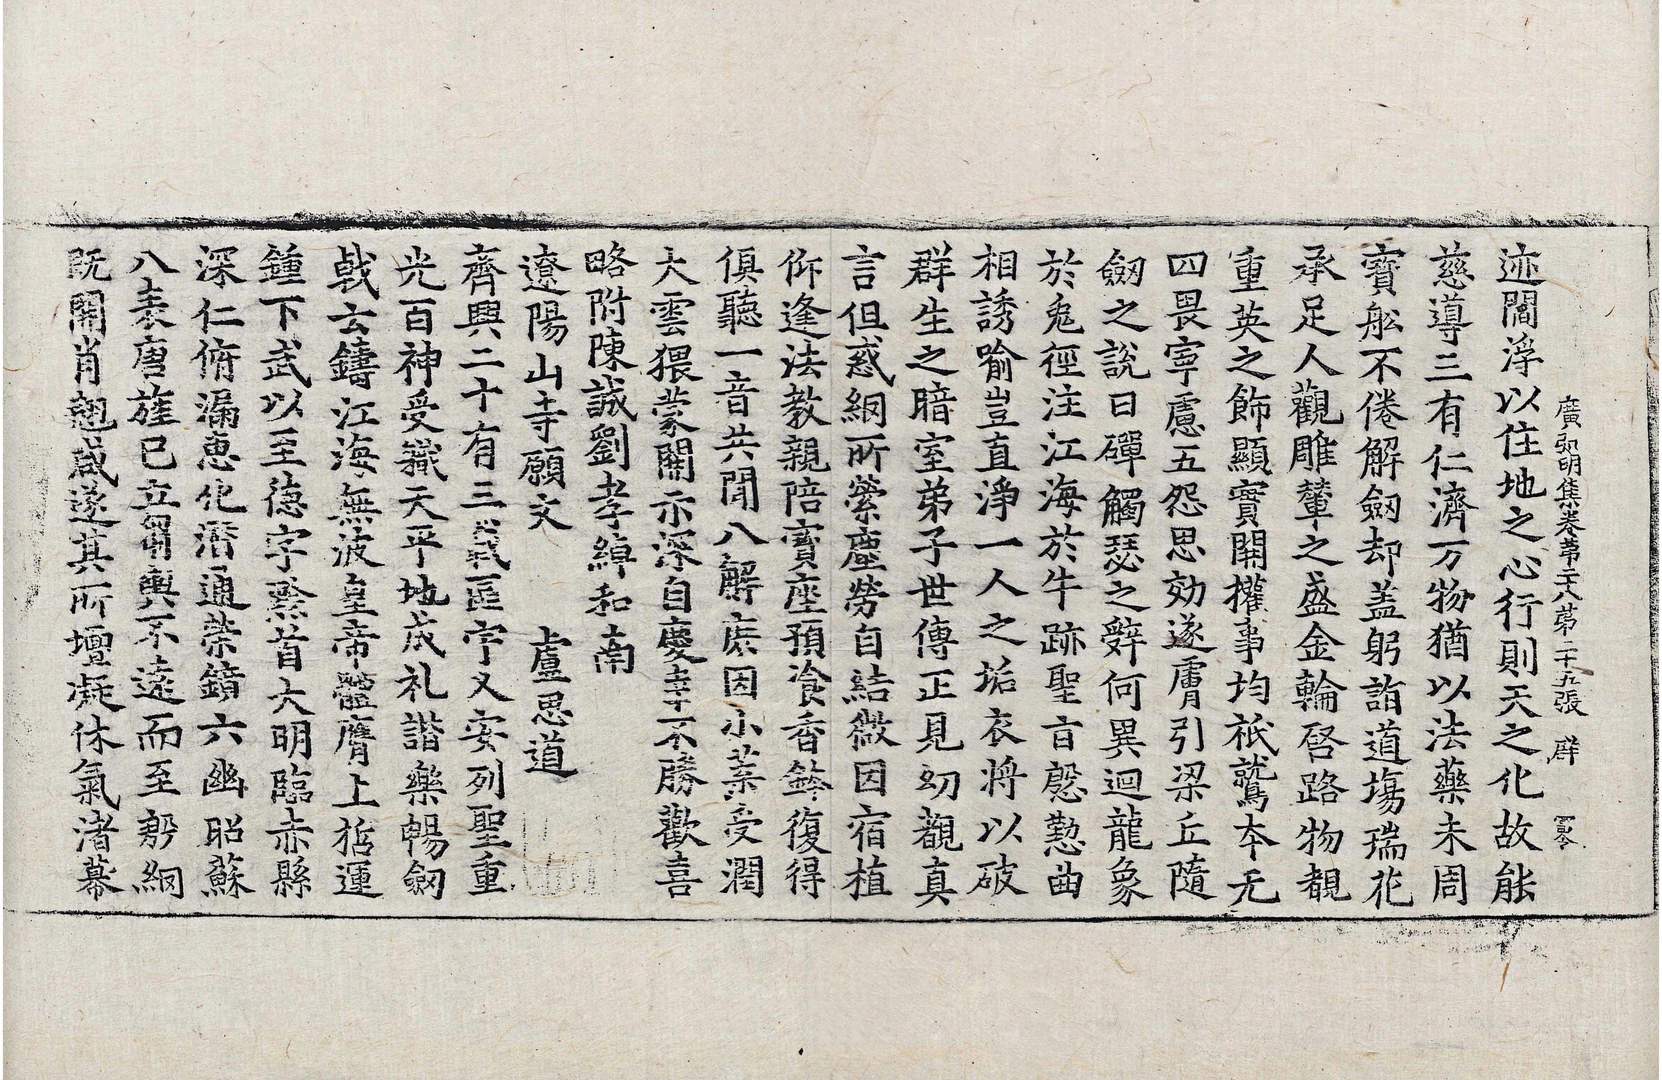 廣弘明集卷第二十八 第二十五張 群
迹閻浮以住地之心行則天之化故能
慈導三有仁濟万物猶以法藥未周
寶舩不倦解劒却盖躬詣道場瑞花
承足人觀雕輦之盛金輪啓路物覩
重英之飾顯實開權事均祇鷲本无
四畏寧慮五怨思効遂膚引梁丘隨
劒之說曰磾觸瑟之辤何異迴龍象
於兔徑注江海於牛跡聖旨慇懃曲
相誘喻豈直淨一人之垢衣將以破
群生之暗室弟子世傳正見幼觀真
言但惑網所縈塵勞自結微因宿植
仰逢法教親陪寶座預飡香鉢復得
俱聽一音共聞八解庶因小葉受潤
大雲猥蒙開示深自慶幸不勝歡喜
略附陳誠劉孝綽和南
遼陽山寺願文 盧思道
齊興二十有三載區宇乂安列聖重
光百神受軄天平地成礼諧樂暢劒
戟云鑄江海無波皇帝體膺上哲運
鍾下武以至德字黔首大明臨赤縣
深仁俯漏惠化潛通榮鏡六幽昭蘇
八表唐旌已立舜輿不遠而至夢網
旣開肖翹咸遂其所壇凝休氣渚幕